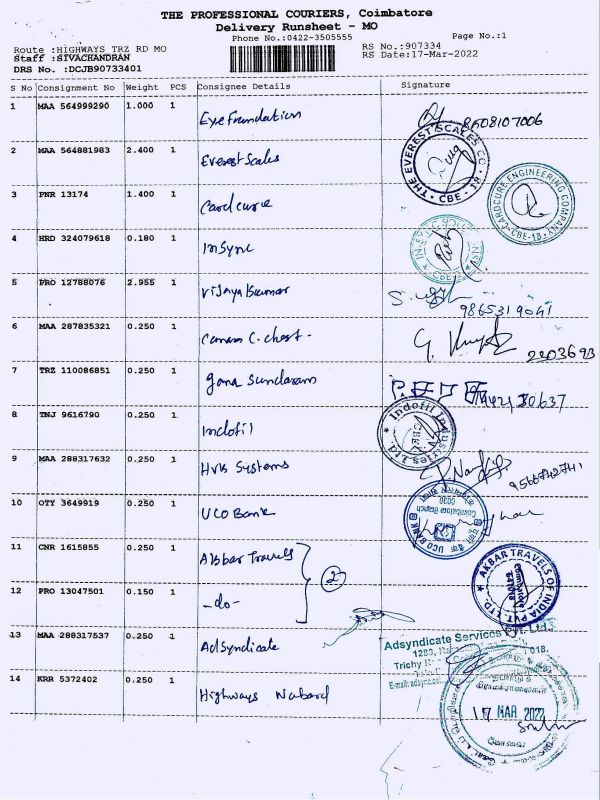 THE PROFESSIONAL COURIERS, Coimbatore
Delivery Runsheet - MO
Phone No.:0422-3505555
Page No.:1
Route :HIGHWAYS TRZ RD MO
RS No.:907334
Staff :SIVACHANDRAN
RS Date:17-Mar-2022
DRS No. :DCJB90733401
S No Consignment No Weight PCS Consignee Details Signature
1 MAA 564999290 1.000 1 Eye Foundation 8608107006
2 MAA 564881983 2.400 1 Everest Scales
THE EVEREST SCALES CC. CBE - 18
3 PNR 13174 1.400 1 Cardcure
CARDCURE ENGINEERING COMPANY CBE-18
4 HRD 324079618 0.180 1 Insync
5 PRO 12788076 2.955 1 Vijaya Kumar
9865319041
6 MAA 287835321 0.250 1 C. chest-
7 TRZ 110086851 0.250 1 gana Sundaram
8 TNJ 9616790 0.250 1 Indofil
Indofil Industries Ltd.
9 MAA 288317632 0.250 1 Systems
9566742741
10 OTY 3649919 0.250 1 UCO Bank
UCO BANK Coimbatore Branch 0030
11 CNR 1615855 0.250 1 Akbar Travels
12 PRO 13047501 0.150 1 -do-
2
AKBAR TRAVELS OF INDIA PVT. LTD. Coimbatore 641018
13 MAA 288317537 0.250 1 Adsyndicate
Adsyndicate Services
018.
Trichy
14 KRR 5372402 0.250 1 Highways Nabard
17 MAR 2022